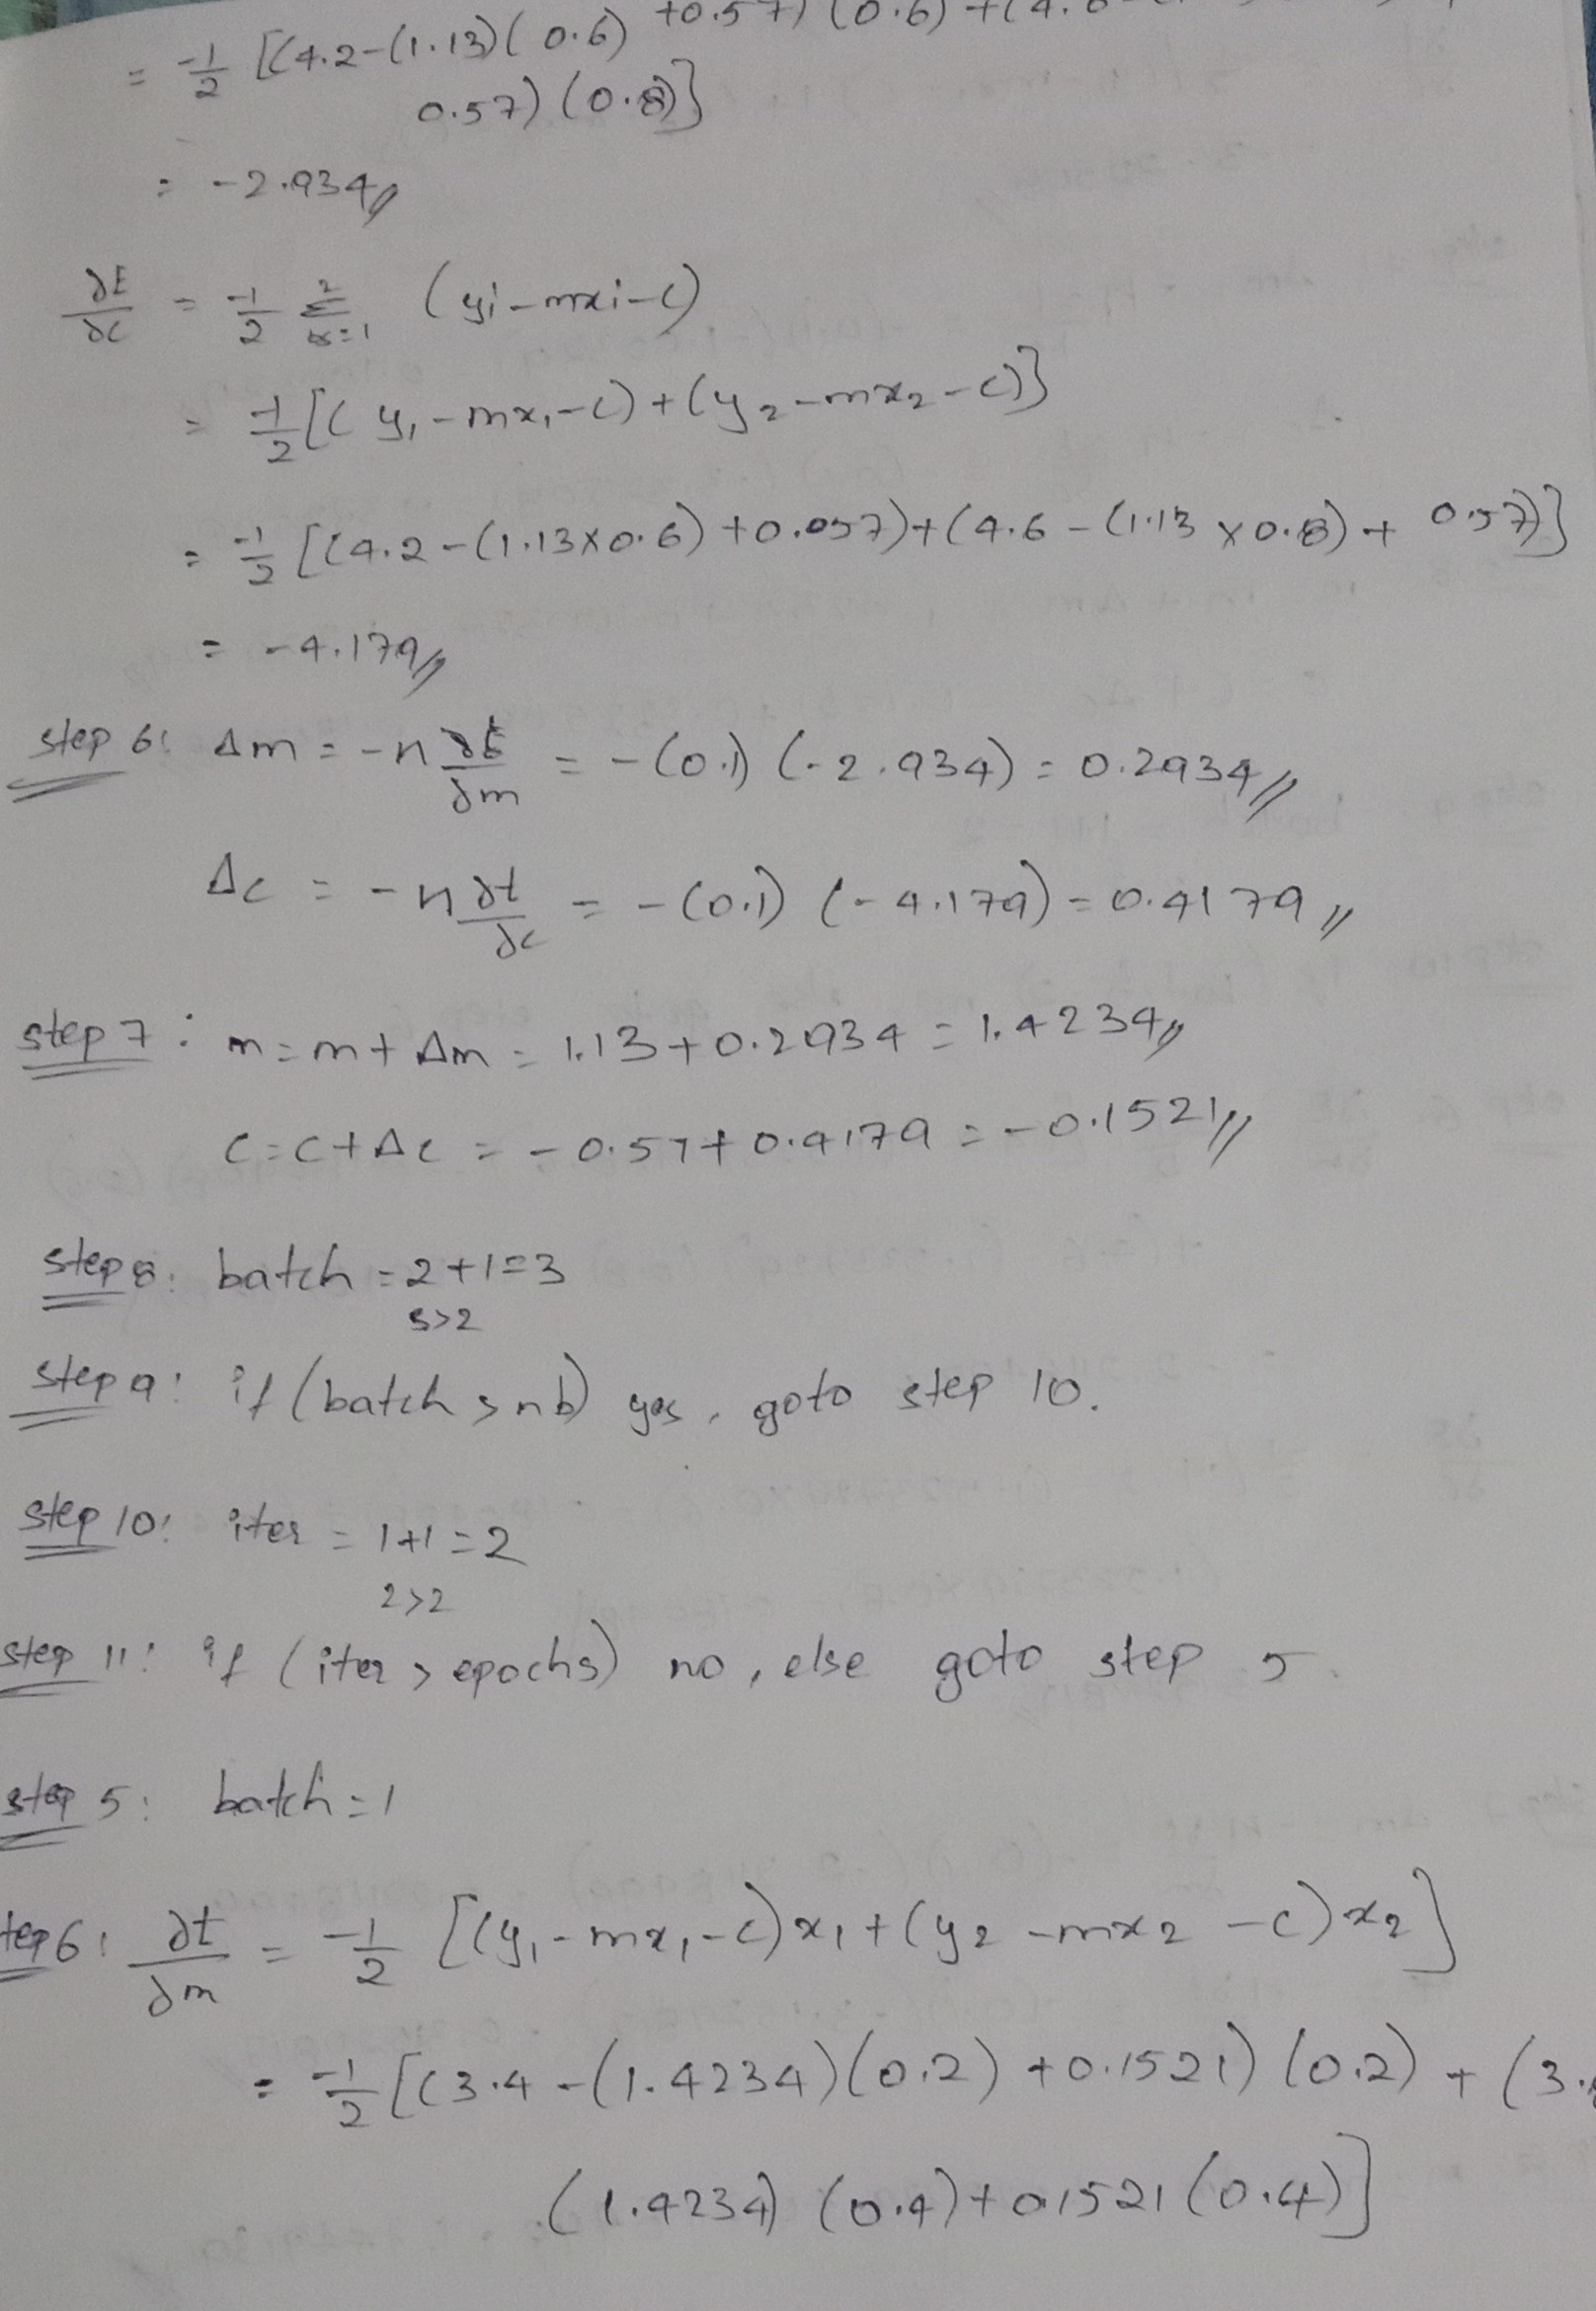 = -1/2 [(4.2-(1.13)(0.6) +0.57) (0.6) +(4.6
0.57) (0.8)]
= -2.934//
∂E/∂c = -1/2 2Σi=1 (yi-mxi-c)
= -1/2 [(y1-mx1-c)+(y2-mx2-c)]
= -1/2 [(4.2-(1.13x0.6)+0.057)+(4.6-(1.13 x0.8)+ 0.57)]
= -4.179//
step 6: Δm = -n ∂E/∂m = -(0.1) (-2.934) = 0.2934//
Δc = -n ∂t/∂c = -(0.1) (-4.179) = 0.4179//
step 7: m = m + Δm = 1.13+0.2934 = 1.4234//
c = c + Δc = -0.57+0.4179 = -0.1521//
step 8: batch = 2+1=3
3>2
step 9: if (batch > nb) yes, goto step 10.
step 10: iter = 1+1=2
2>2
step 11: if (iter > epochs) no, else goto step 5.
step 5: batch=1
tep 6: ∂t/∂m = -1/2 [(y1-mx1-c)x1+(y2-mx2-c)x2]
= -1/2 [(3.4-(1.4234)(0.2)+0.1521)(0.2)+(3.
(1.4234)(0.4)+0.1521(0.4)]